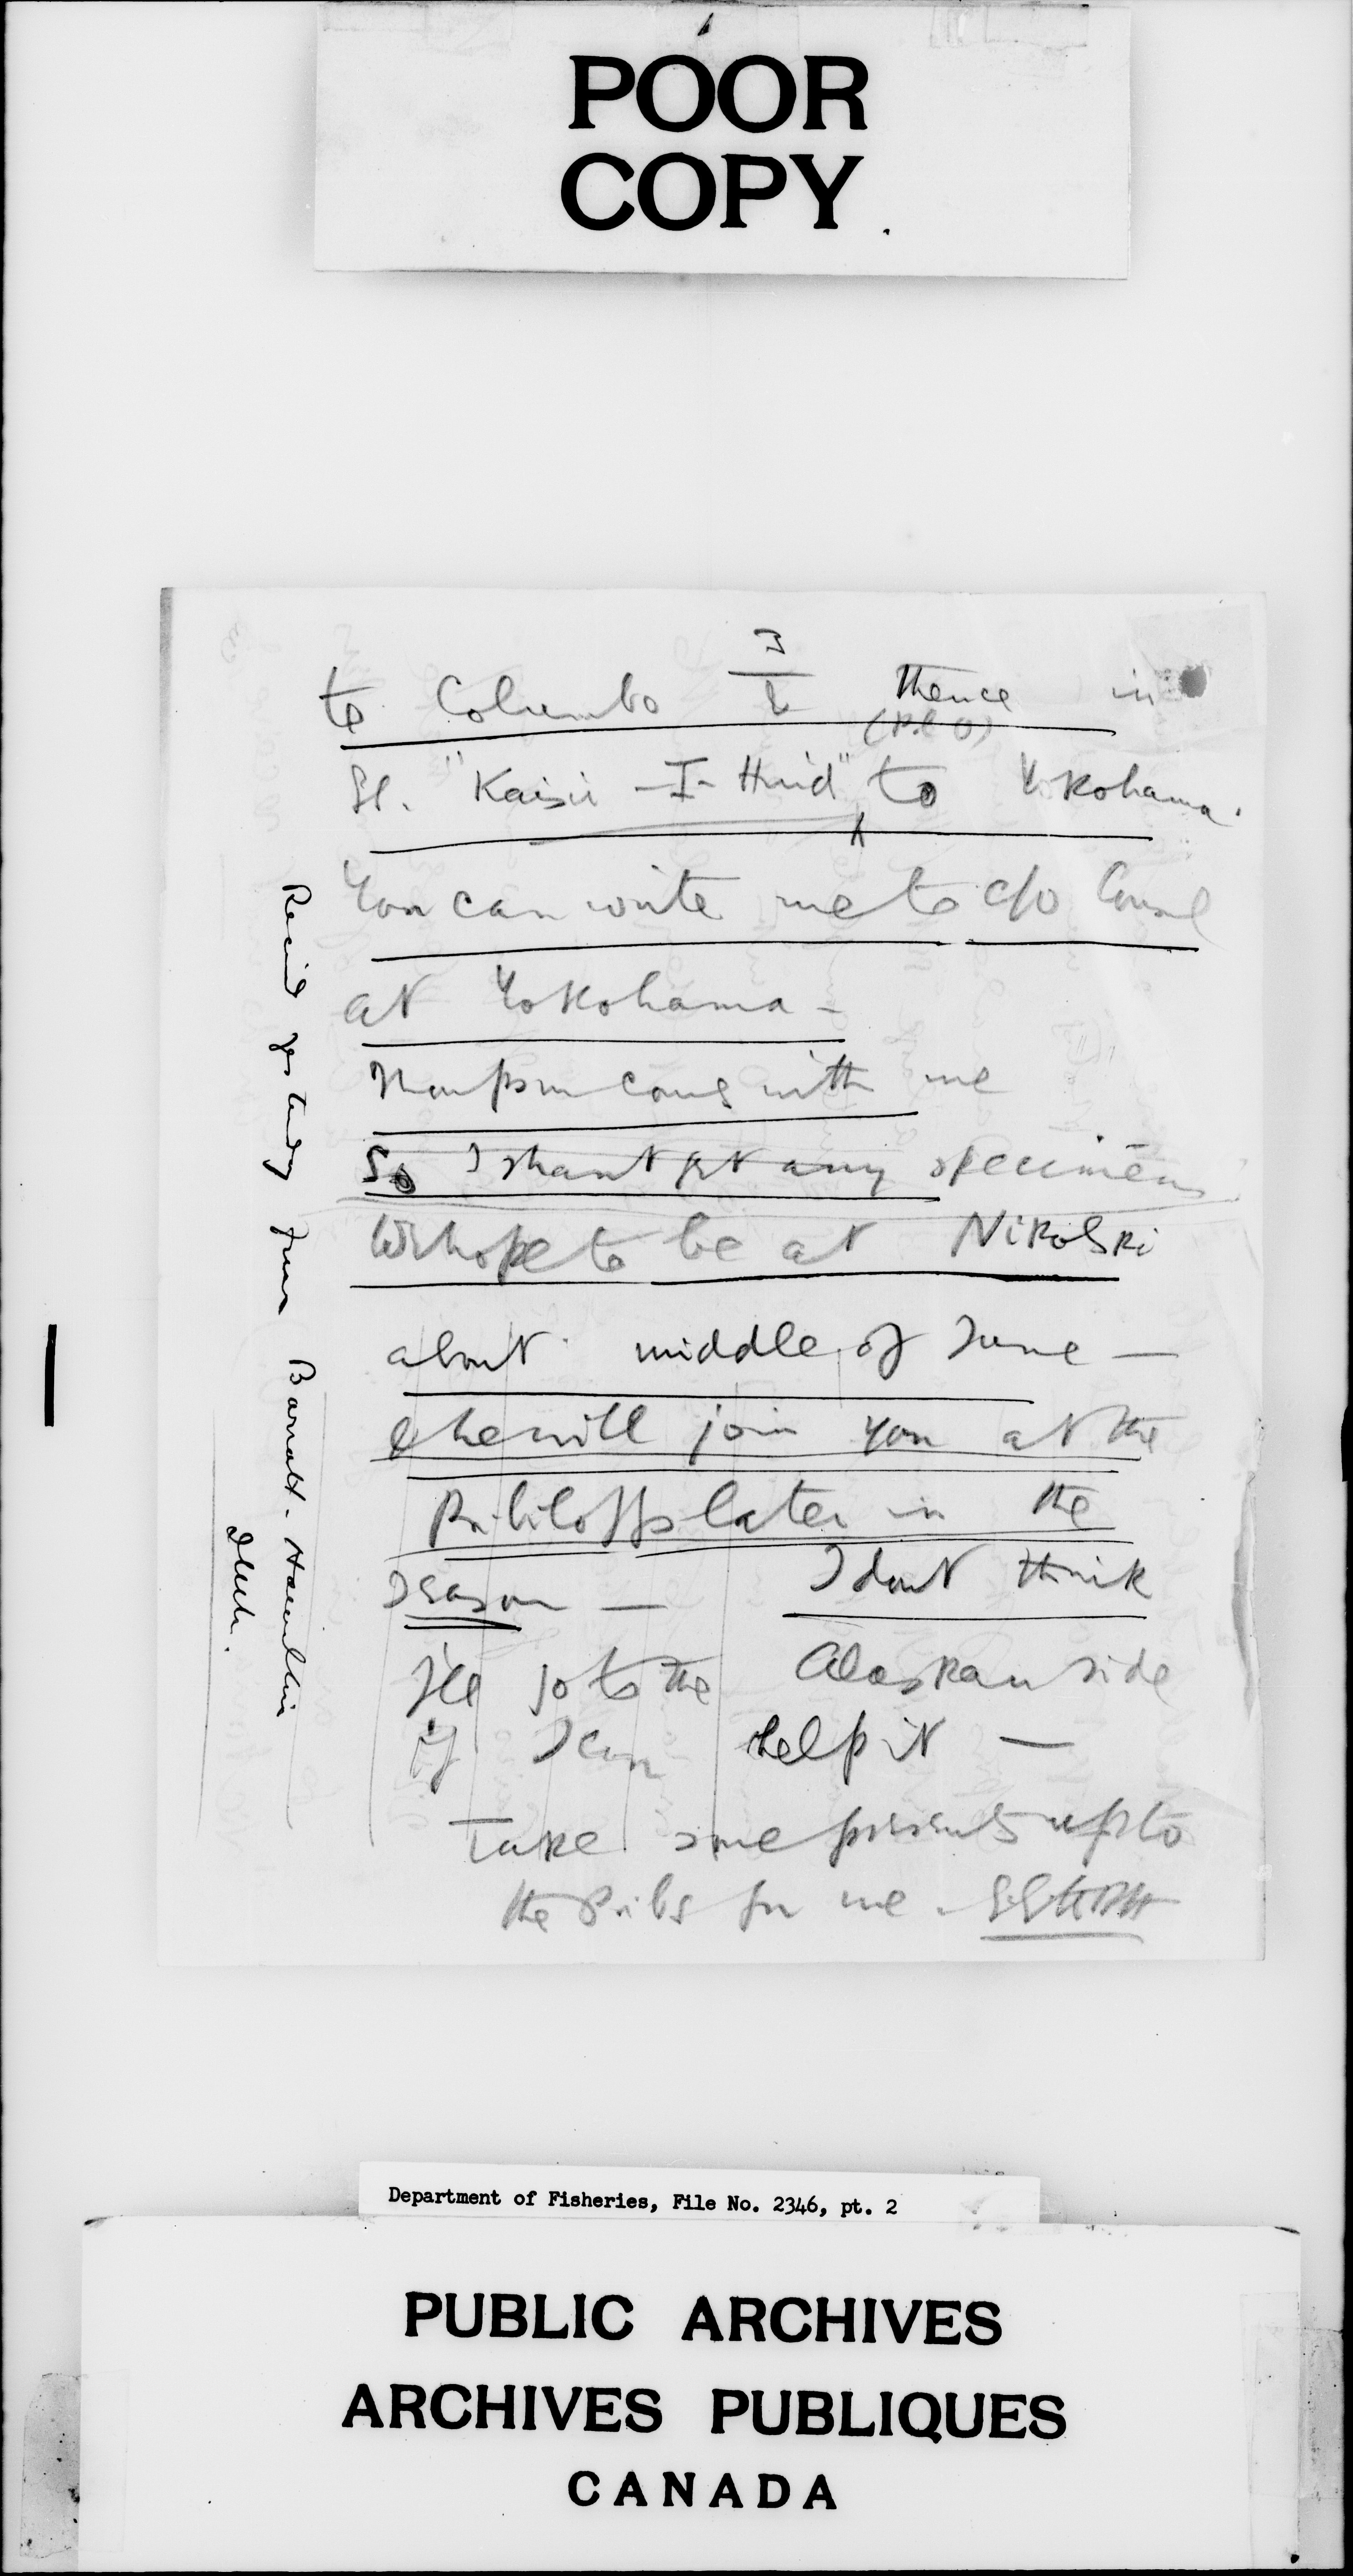 POOR
COPY
3
to Columbo & thence in
(P & O)
SS. "Kaisir-I-Hind" to Yokohama.
You can write me to c/o Consul
at Yokohama -
Thompson comes with me
So I shant get any specimens
We hope to be at Nikolski
about middle of June —
& he will join you at the
Pribiloffs later in the
season — I dont think
I'll go to the Alaskan side
if I can help it —
Take some presents up to
the Pribs for me.
Receivd yesterday from Barrett-Hamilton
Department of Fisheries, File No. 2346, pt. 2
PUBLIC ARCHIVES
ARCHIVES PUBLIQUES
CANADA